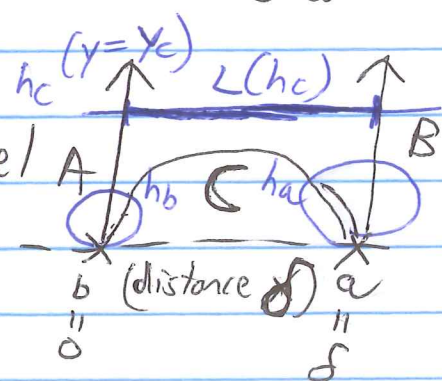 (y = y_c)
h_c L(h_c)
el A B
h_b C h_a
b (distance δ) a
" "
0 δ